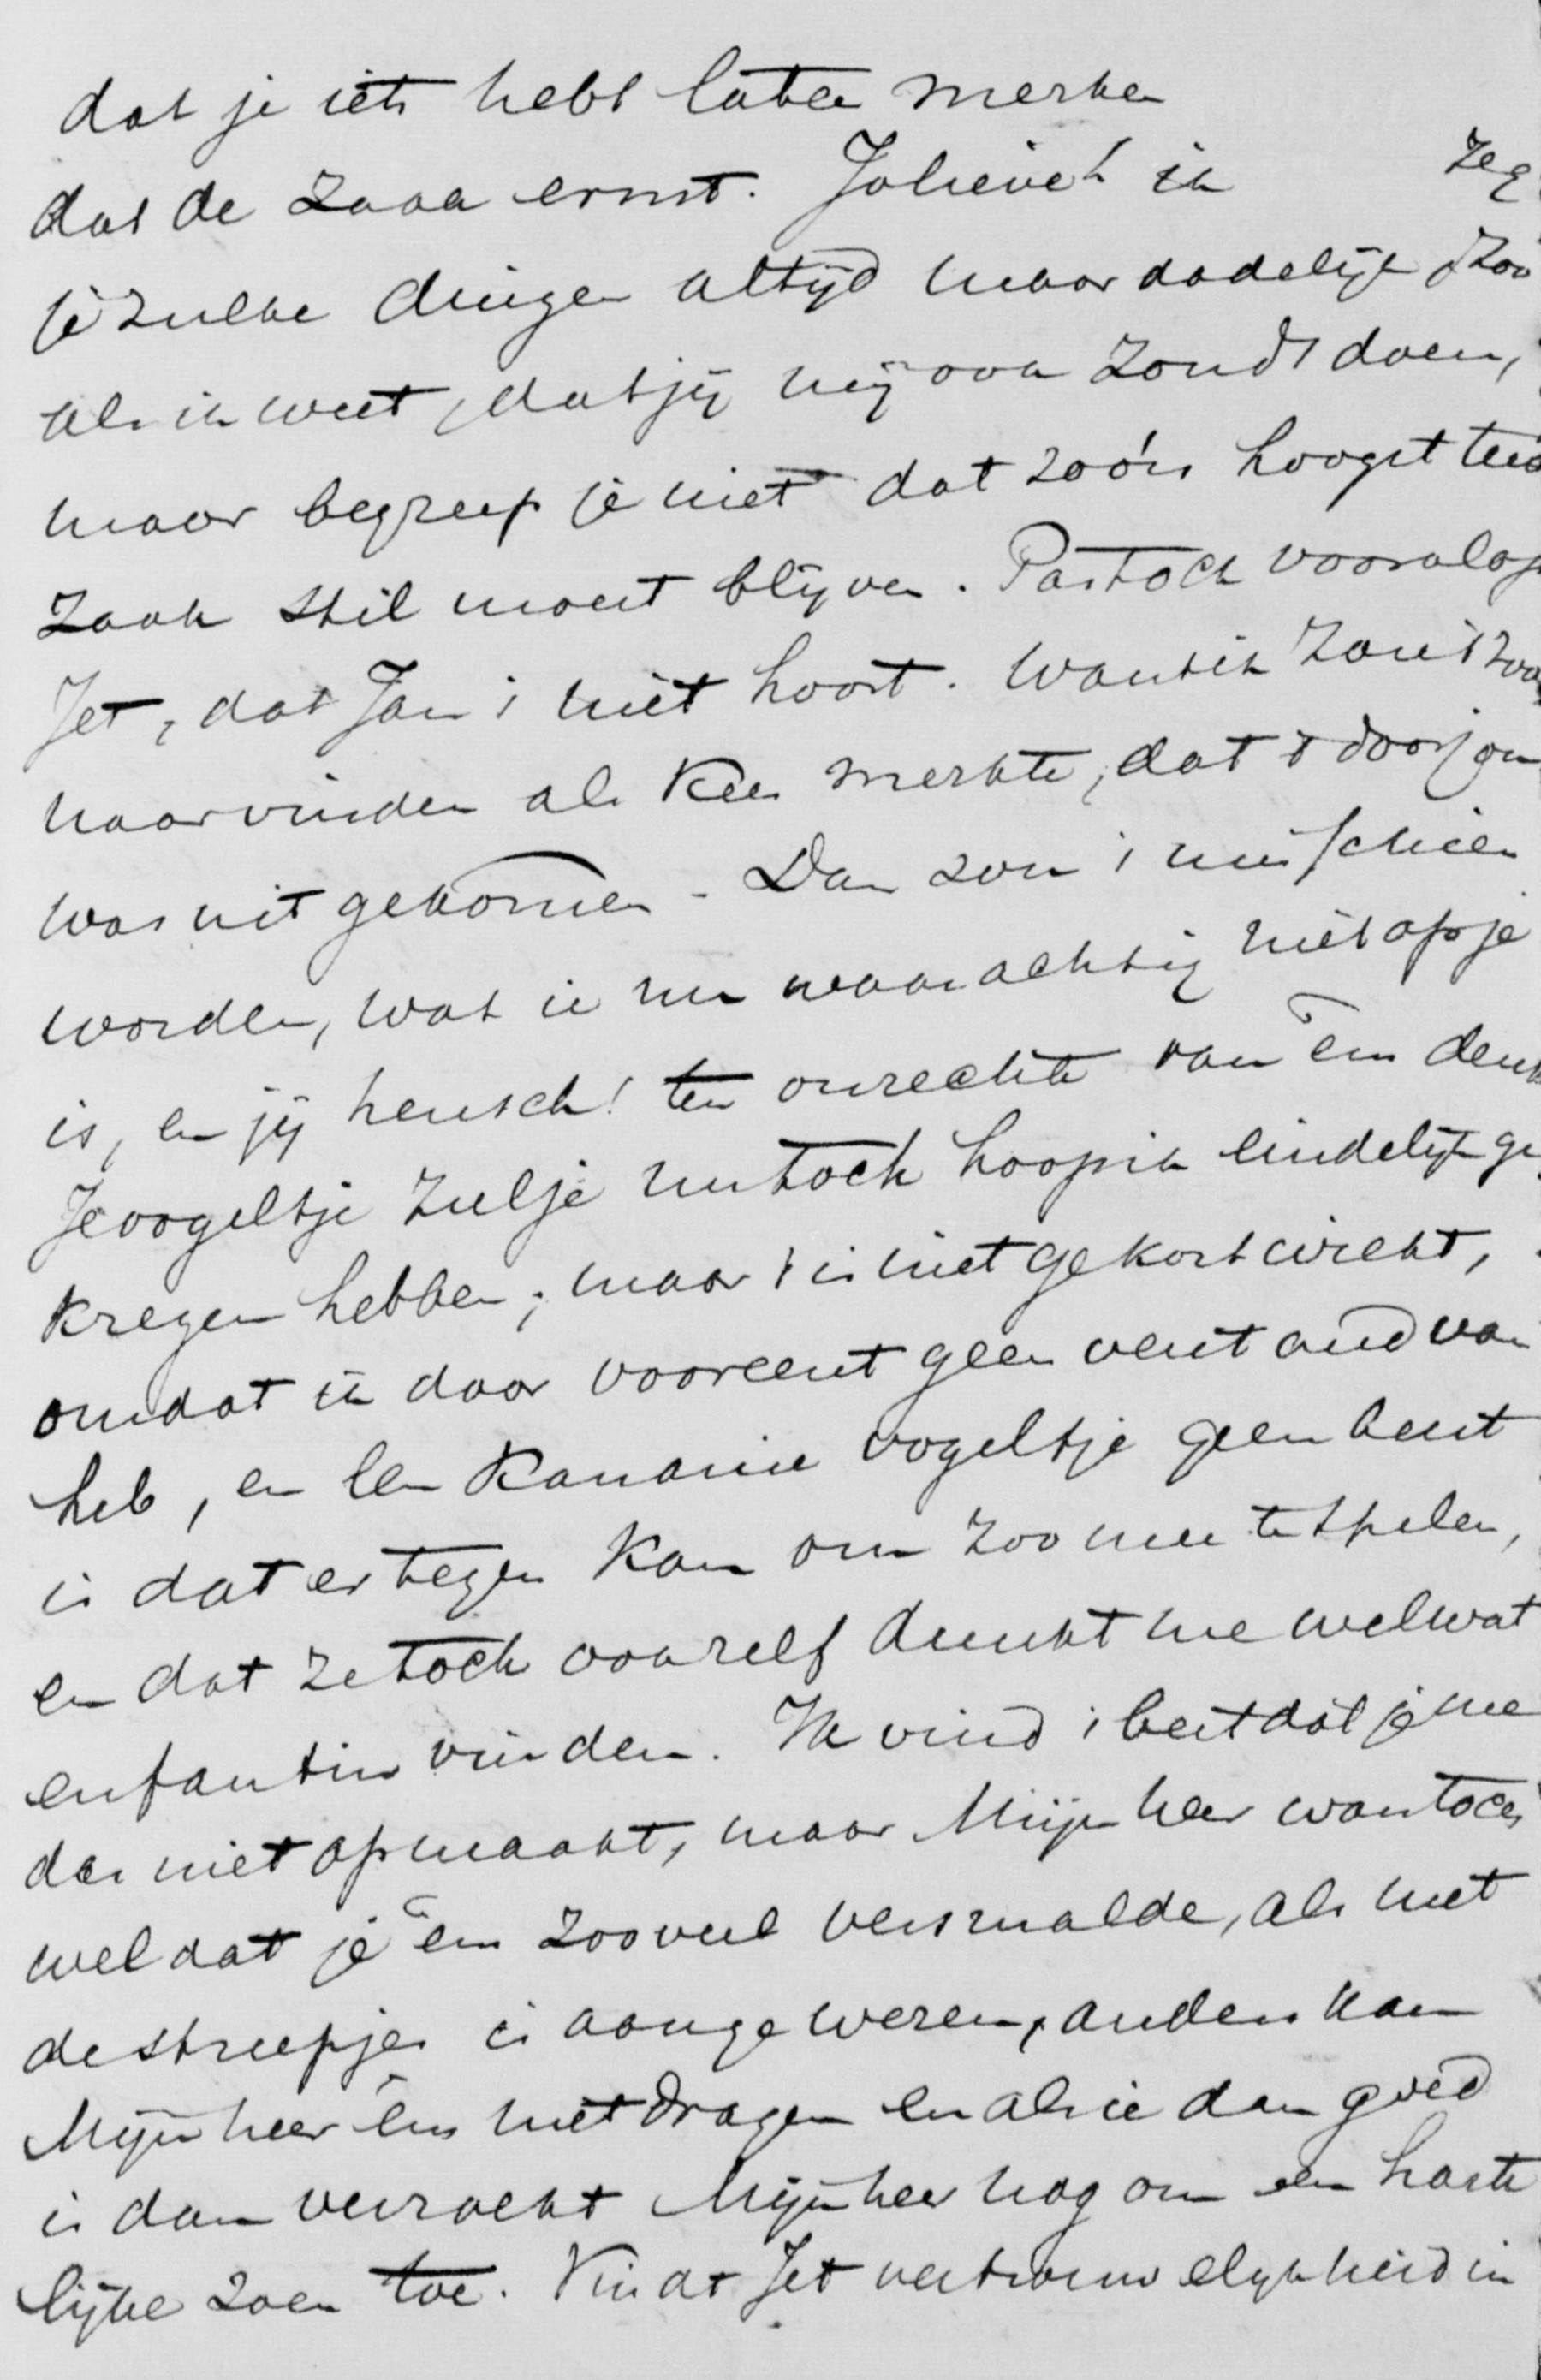 dat je iets hebt laten merken
dat de zaak ernst. Jolieve! ik zeg
je zulke dingen altijd maar dadelijk zoo
als ik weet, dat jij mij ook zoudt doen,
maar begreep je niet dat zoo'n hoogst teed
zaak stil moest blijven. Pas toch vooral op
Jet, dat Jan 't niet hoort. Want ik zou 't zoo
naar vinden als Kees merkte, dat 't door jou
was uitgekomen - Dan zou i misschien
worden, wat ie nu waarachtig niet op je
is, en jij heusch! ten onrechte van em denk
Je vogeltje zul je nu toch hoop ik eindelijk ge
kregen hebben; maar 't is niet gekortwiekt,
omdat ik daar vooreerst geen verstand van
heb, en een Kanarie vogeltje geen beest
is dat er tegen kan om zoo mee te spelen,
en dat ze toch ook zelf dunkt me wel wat
enfantin vinden. Ik vind 't best dat je me
das niet opmaakt, maar Mijnheer wou toch
wel dat je em zooveel versmalde, als met
de streepjes is aangewezen, anders kan
Mijnheer em niet dragen en als ie dan goed
is dan verzoekt Mijnheer nog om een harte
lijke zoen toe. Vindt Jet vertrouwelijkheid in